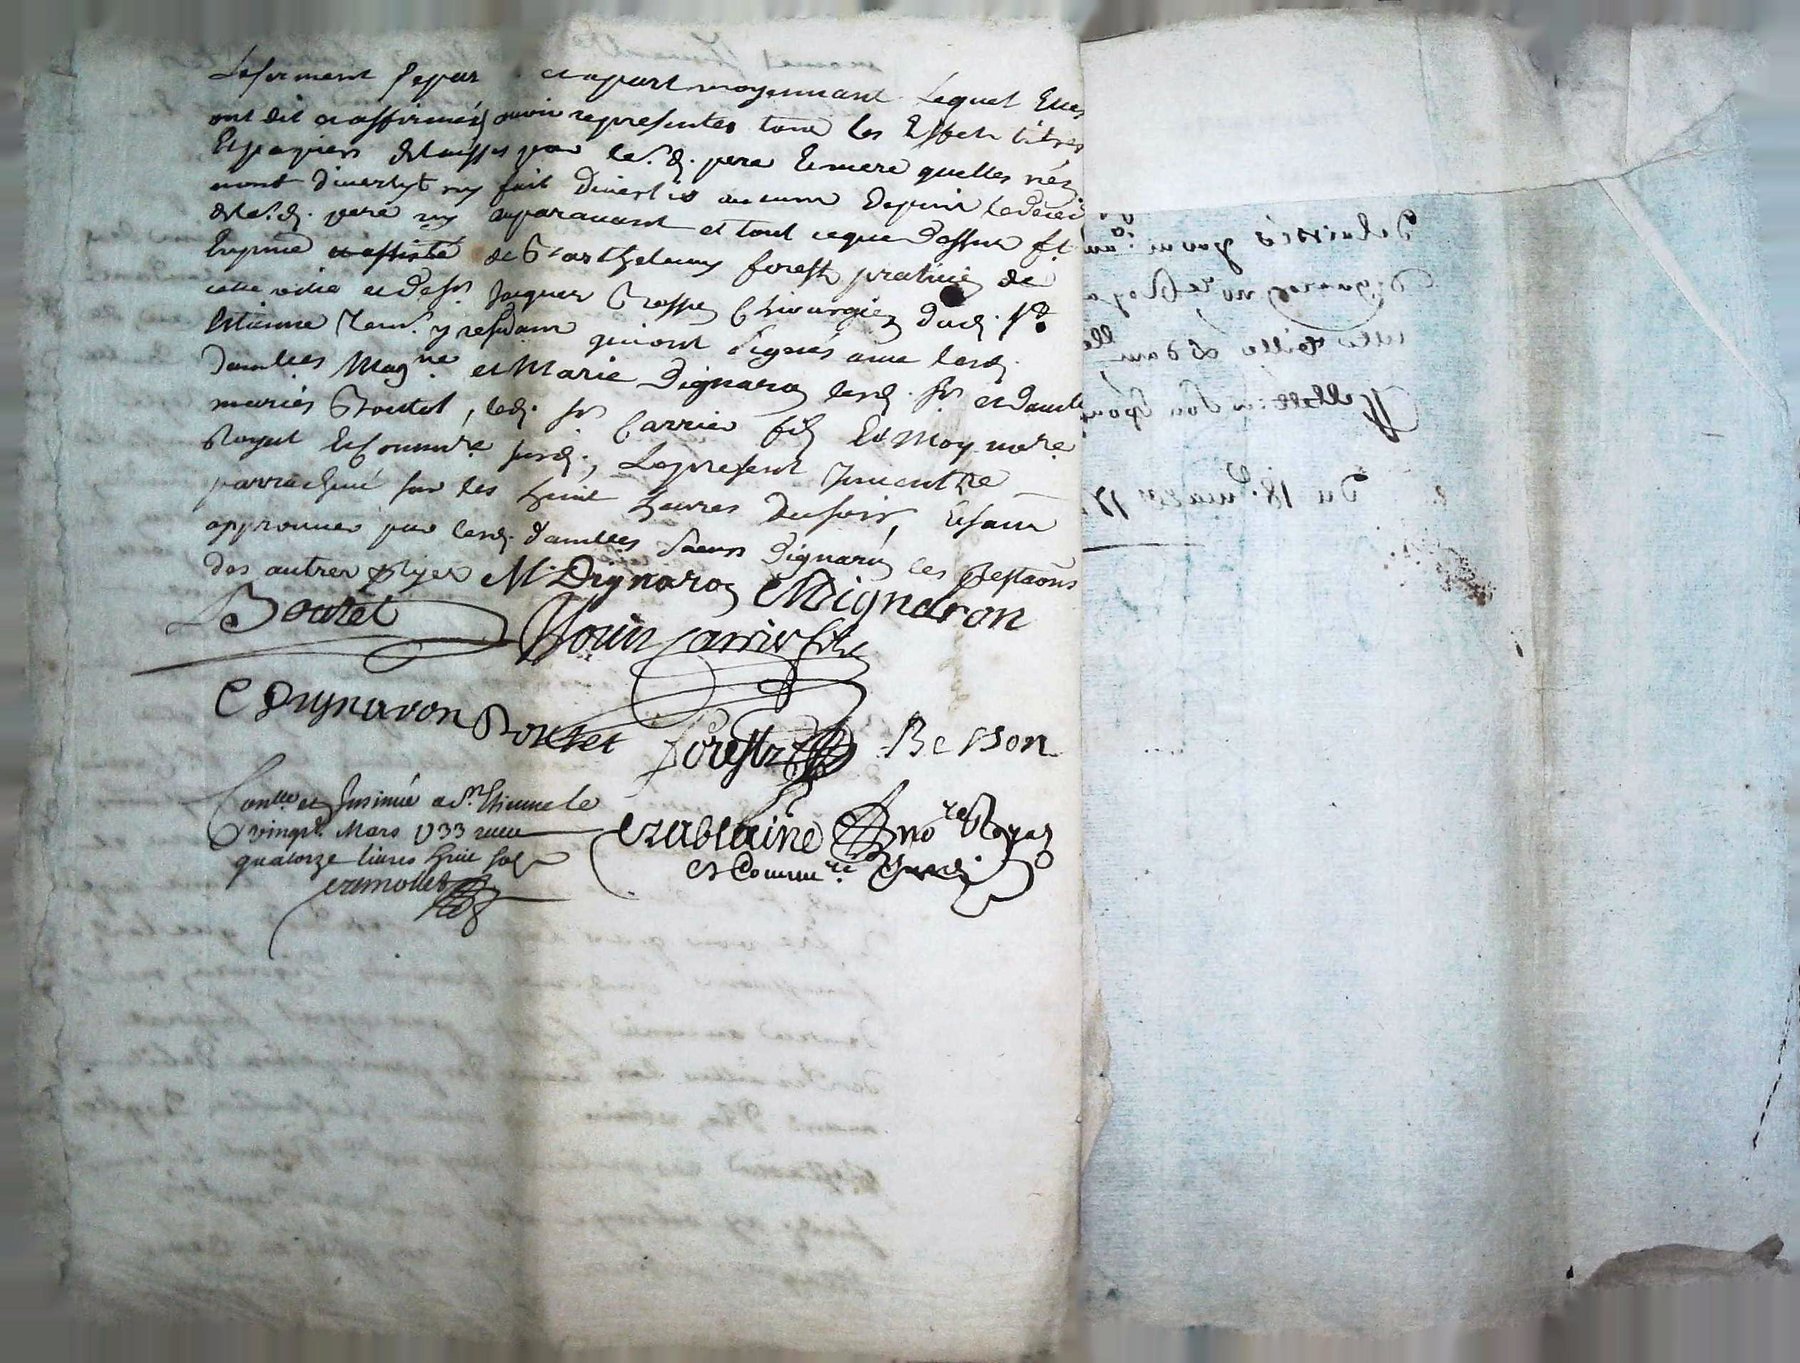 Le serment separ et apart moyennant lequel Elles
ont dit et affirmés avoir representes tous les Effets titres
Et papiers delaissés par led. s. pere Et mere quelles n'en
n'ont diverty ny fait divertir aucuns depuis le deces
dele. d. pere ny auparavant et tout ce que dessus ft
En presence de Barthelemy forest praticien de
cette ville et de sr. Jacques Besson Chirurgien dud. St.
Estienne tems. y residans qui ont signés avec lesd.
damlles Magne et Marie Dignaron lesd. sr. et damlle
mariés Boutet, led. sr. Carrier fils Et Moy nore
Royal Et Commre susd., Le present Inventre
parachevé sur les huit heures du soir, Et sans
approuver par lesd. damlles Soeurs Dignaron les Prestaons
des autres
M. Dignaron M Dignaron
Boutet Carrier fils
C Dignaron Boutet Forest Besson
Conlle et Insinué a St. Etienne le
vingt. Mars 1733 receu
quatorze livres huit sols
nore Royal
et Commre susd.
Delaissés par
Dignaron nore Royal
cette ville et dam lle
son Epouse
Du 18. mars 17